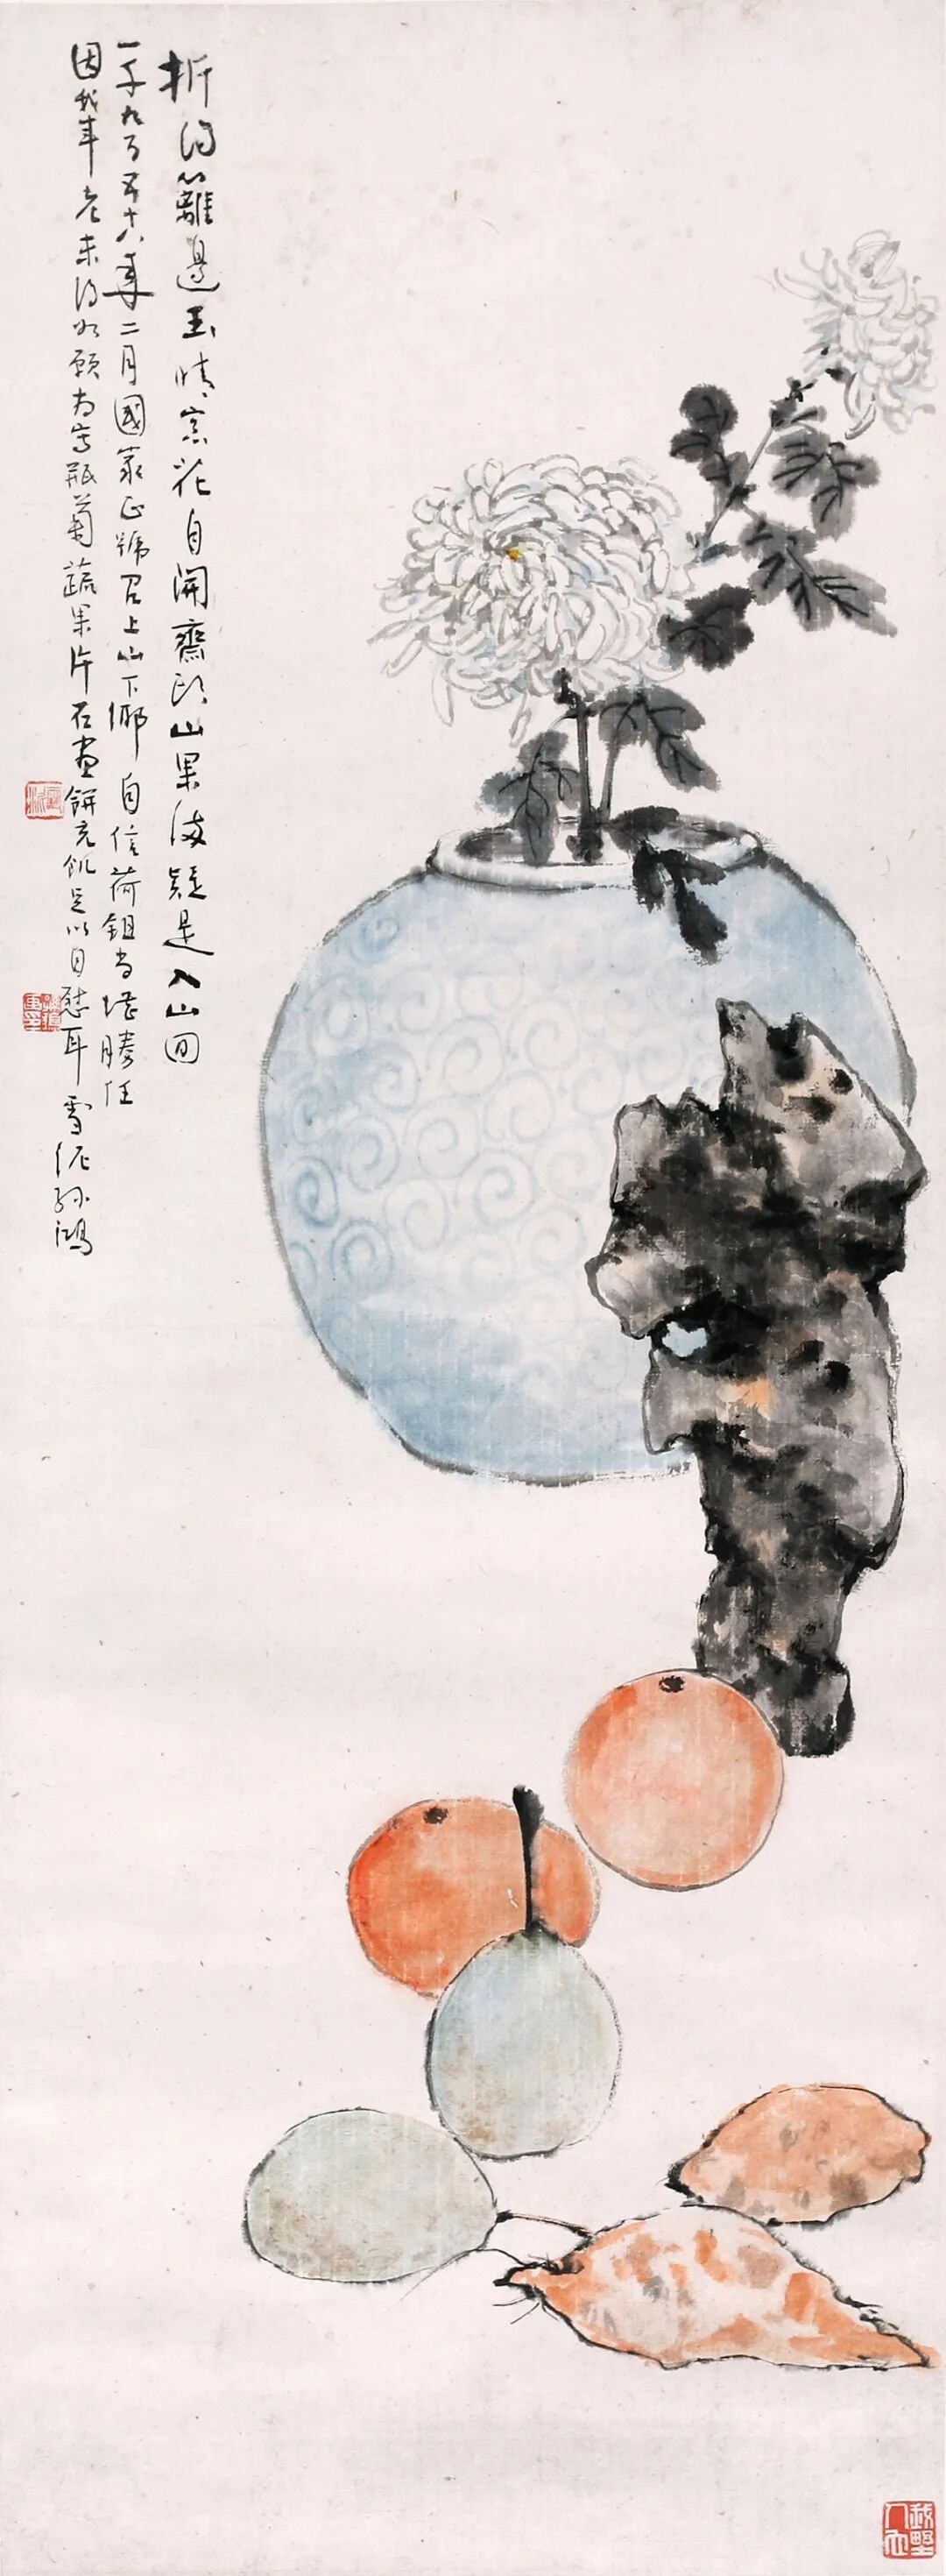 折得籬邊玉
晴窓花自開齋頭山果滿疑是入山回
一千九百五十八年二月國家正號召上山下鄉自信荷鉏尚堪勝任
因我年老未得如願为寫瓶菊蔬果片石畫餅充飢足以自慰耳 雪泥孫鴻